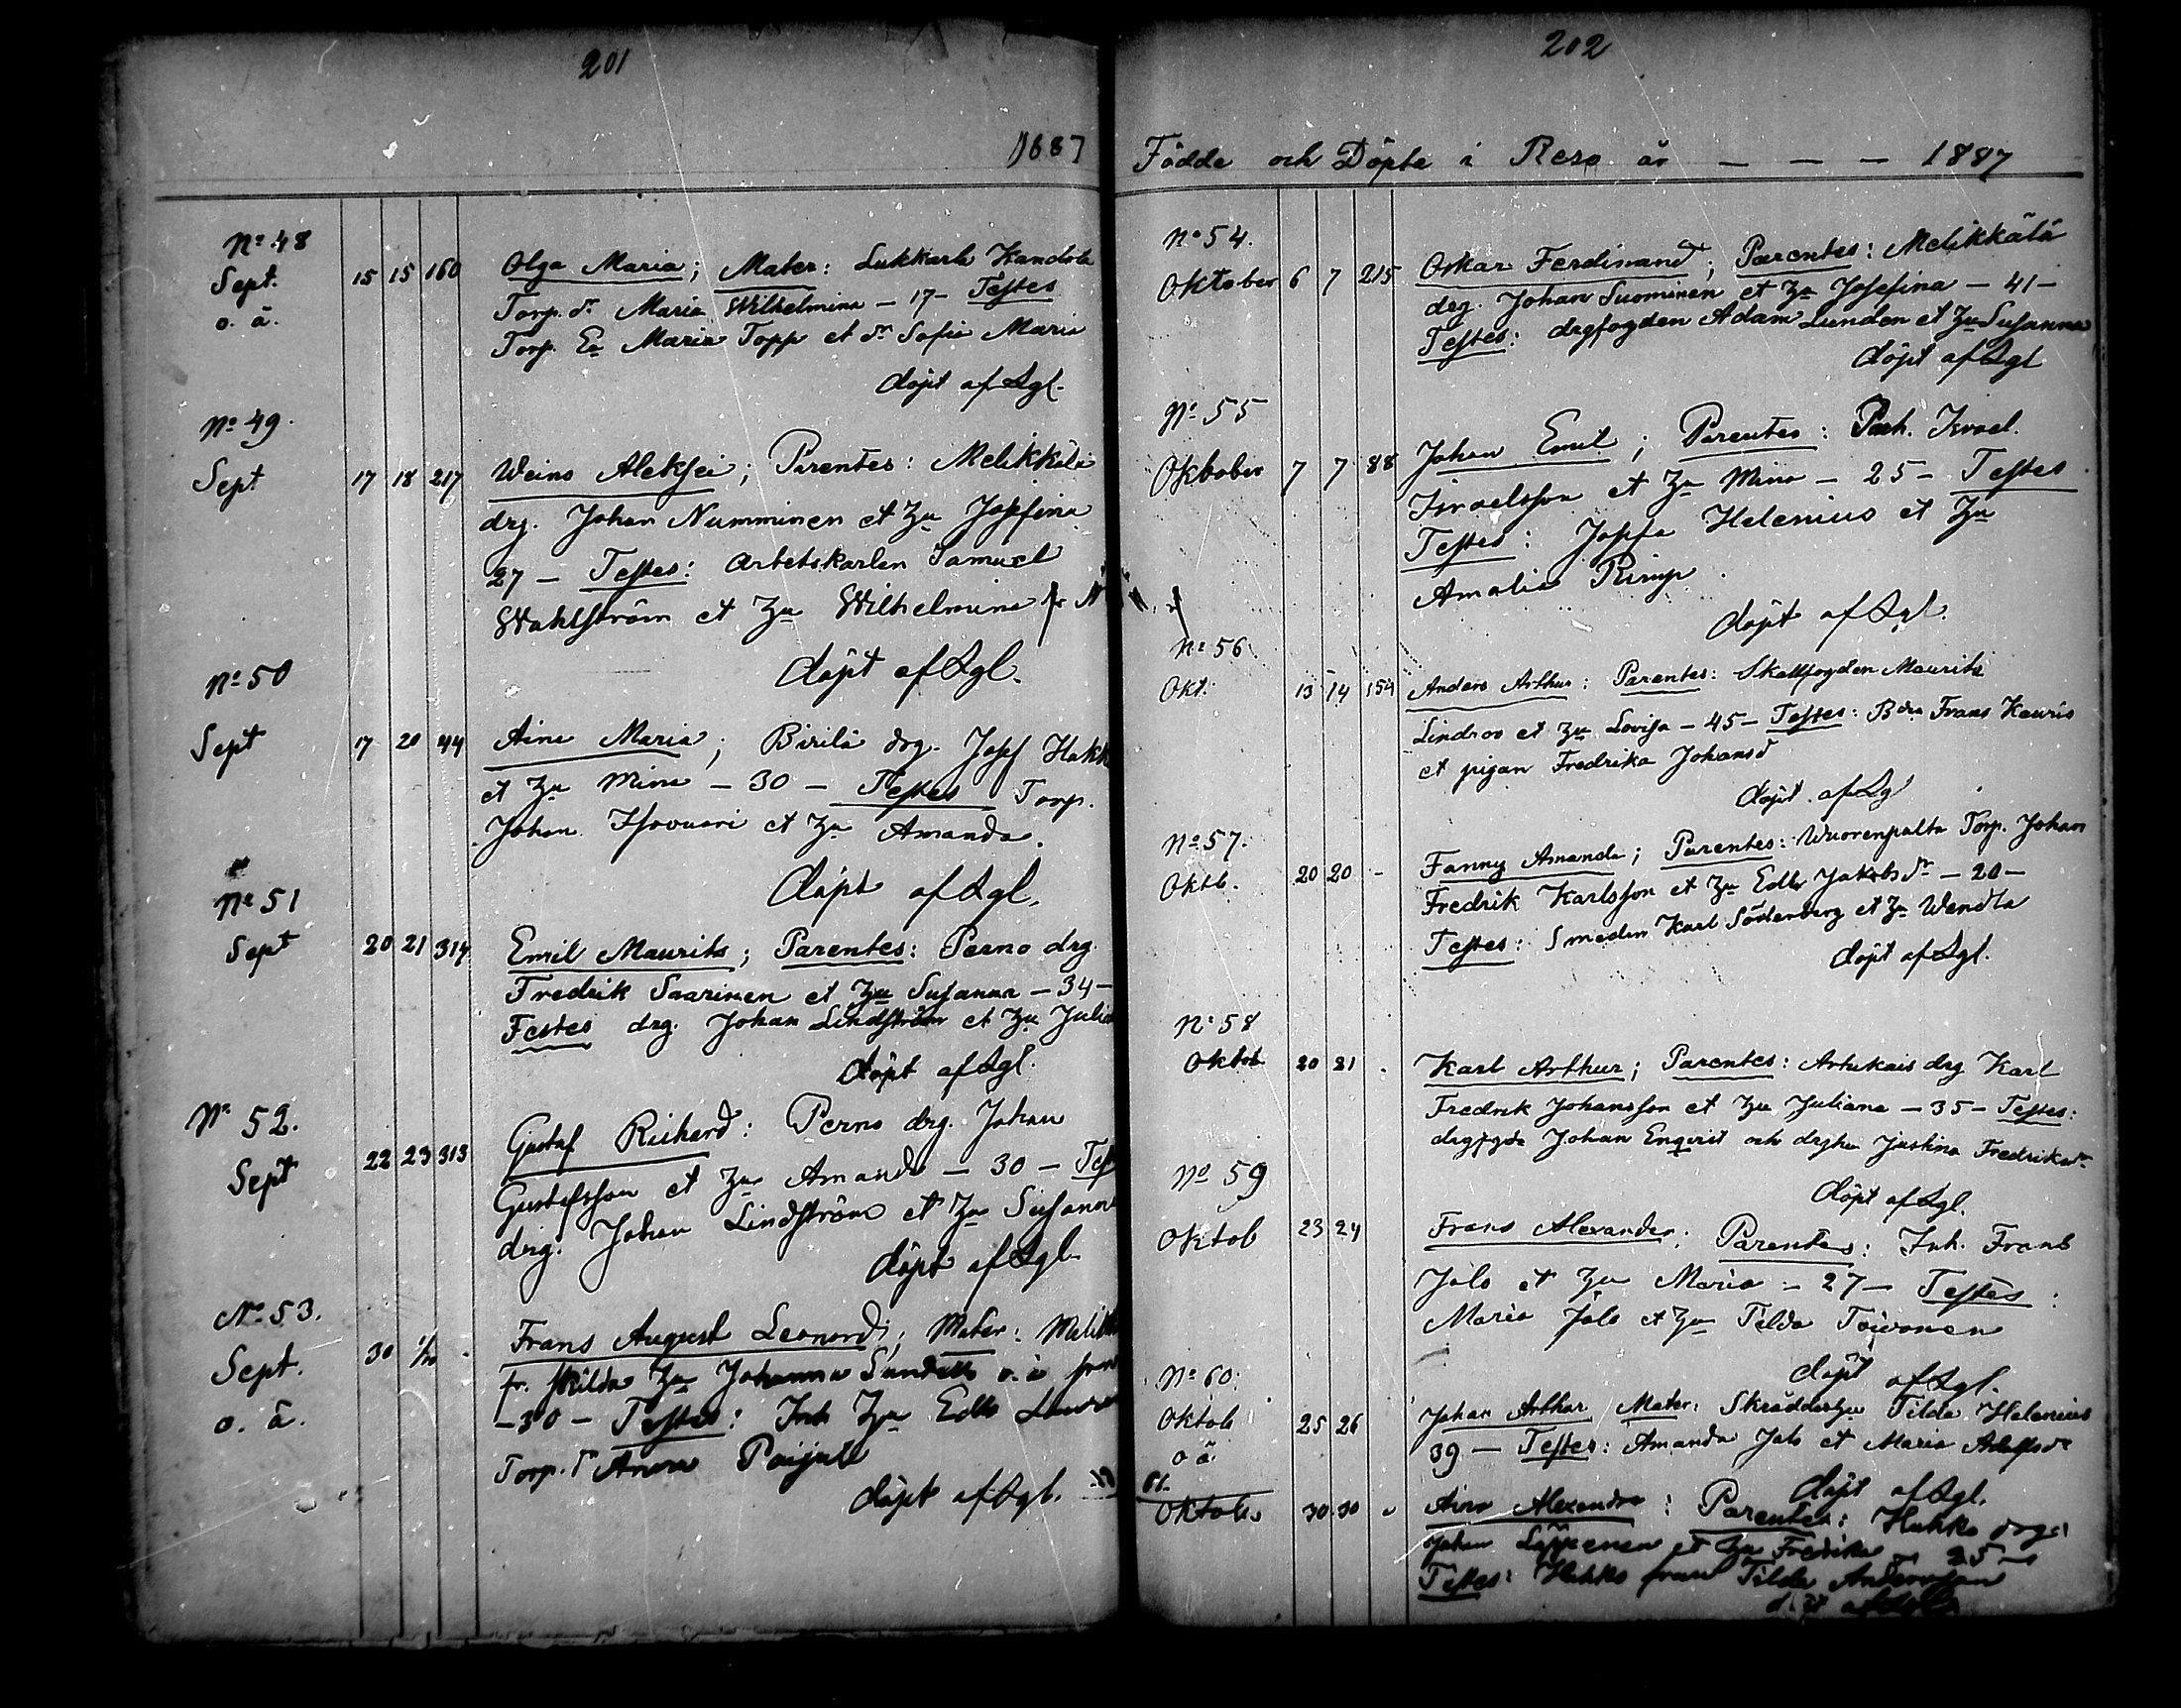 201
1887
No 48
Sept. 15 15 160 Olga Maria; Mater: Lukkarla Kandola
o. ä. Torp. dr Maria Wilhelmina – 17 – Testes
Torp. Ea Maria Topp et dr Sofia Maria
döpt af Lgl.
No 49.
Sept 17 18 217 Weino Aleksei; Parentes: Melikkälä
drg. Johan Numminen et Hu Josefina
27 – Testes: arbetskarlen Samuel
Wahlström et Hu Wilhelmina
döpt af Lgl.
No 50
Sept 17 20 44 Aina Maria; Birilä drg. Josef Hakk
et Hu Mina – 30 – Testes Torp.
Johan Isovuori et Hu Amanda.
döpt af Lgl.
No 51
Sept 20 21 314 Emil Maurits; Parentes: Perno drg.
Fredrik Saarinen et Hu Susanna – 34 –
Testes drg. Johan Lindström et Hu Julia
döpt af Lgl.
No 52.
Sept 22 23 313 Gustaf Richard: Perno drg. Johan
Gustafsson et Hu Amanda – 30 – Test
drg. Johan Lindström et Hu Susanna
döpt af Lgl.
No 53.
Sept. 30 1/10 Frans August Leonard; Mater:
o. ä. fr. Hilda Hu Johanna
– 30 – Testes: Inh Hu Edla
Torp. dr Anna
döpt af Lgl.
202
Födde och Döpte i Reso år – – – 1887
No 54.
Oktober 6 7 215 Oskar Ferdinand; Parentes: Melikkälä
drg. Johan Suominen et Hu Josefina – 41 –
Testes: drgfogden Adam Lunden et Hu Susanna
döpt af Lgl
No 55
Oktober 7 7 88 Johan Emil; Parentes: Israel.
Israelsson et Hu Mina – 25 – Testes
Testes: Josefa Helenius et Hu
Amalia Rimp.
döpt af Lgl.
No 56
Okt. 13 14 154 Anders Arthur: Parentes: Skallfogden Maurits
Lindroo et Hu Lovisa – 45 – Testes: Frans Kauris
et pigan Fredrika Johansd
döpt af Lg
No 57.
Oktb. 20 20 – Fanny Amanda; Parentes: Wuorenpalta Torp. Johan
Fredrik Karlsson et Hu Edla Jakobsdr – 20 –
Testes: Smeden Karl Söderberg et Hu Wendla
döpt af Lgl.
No 58
Oktob 20 21 Karl Arthur; Parentes: Artukais drg Karl
Fredrik Johansson et Hu Juliana – 35 – Testes:
drgfgde Johan Enqvist och drghu Justina Fredriksdr
döpt af Lgl.
No 59
Oktob 23 24 Frans Alexander; Parentes: Inh. Frans
Jalo et Hu Maria – 27 – Testes:
Maria Jalo et Hu Tilda Toivonen
döpt af Lgl.
No 60.
Oktob 25 26 Johan Arthur Mater: Skräddarhu Tilda Helenius
o ä. 39 – Testes: Amanda Jalo et Maria Adolfsdr
döpt af Lgl.
61.
Oktob. 30 30 Aina Alexandra: Parentes: Hukko drg.
Johan et Hu Fredrika – 25 –
Testes: Hukko Tilda Andersson